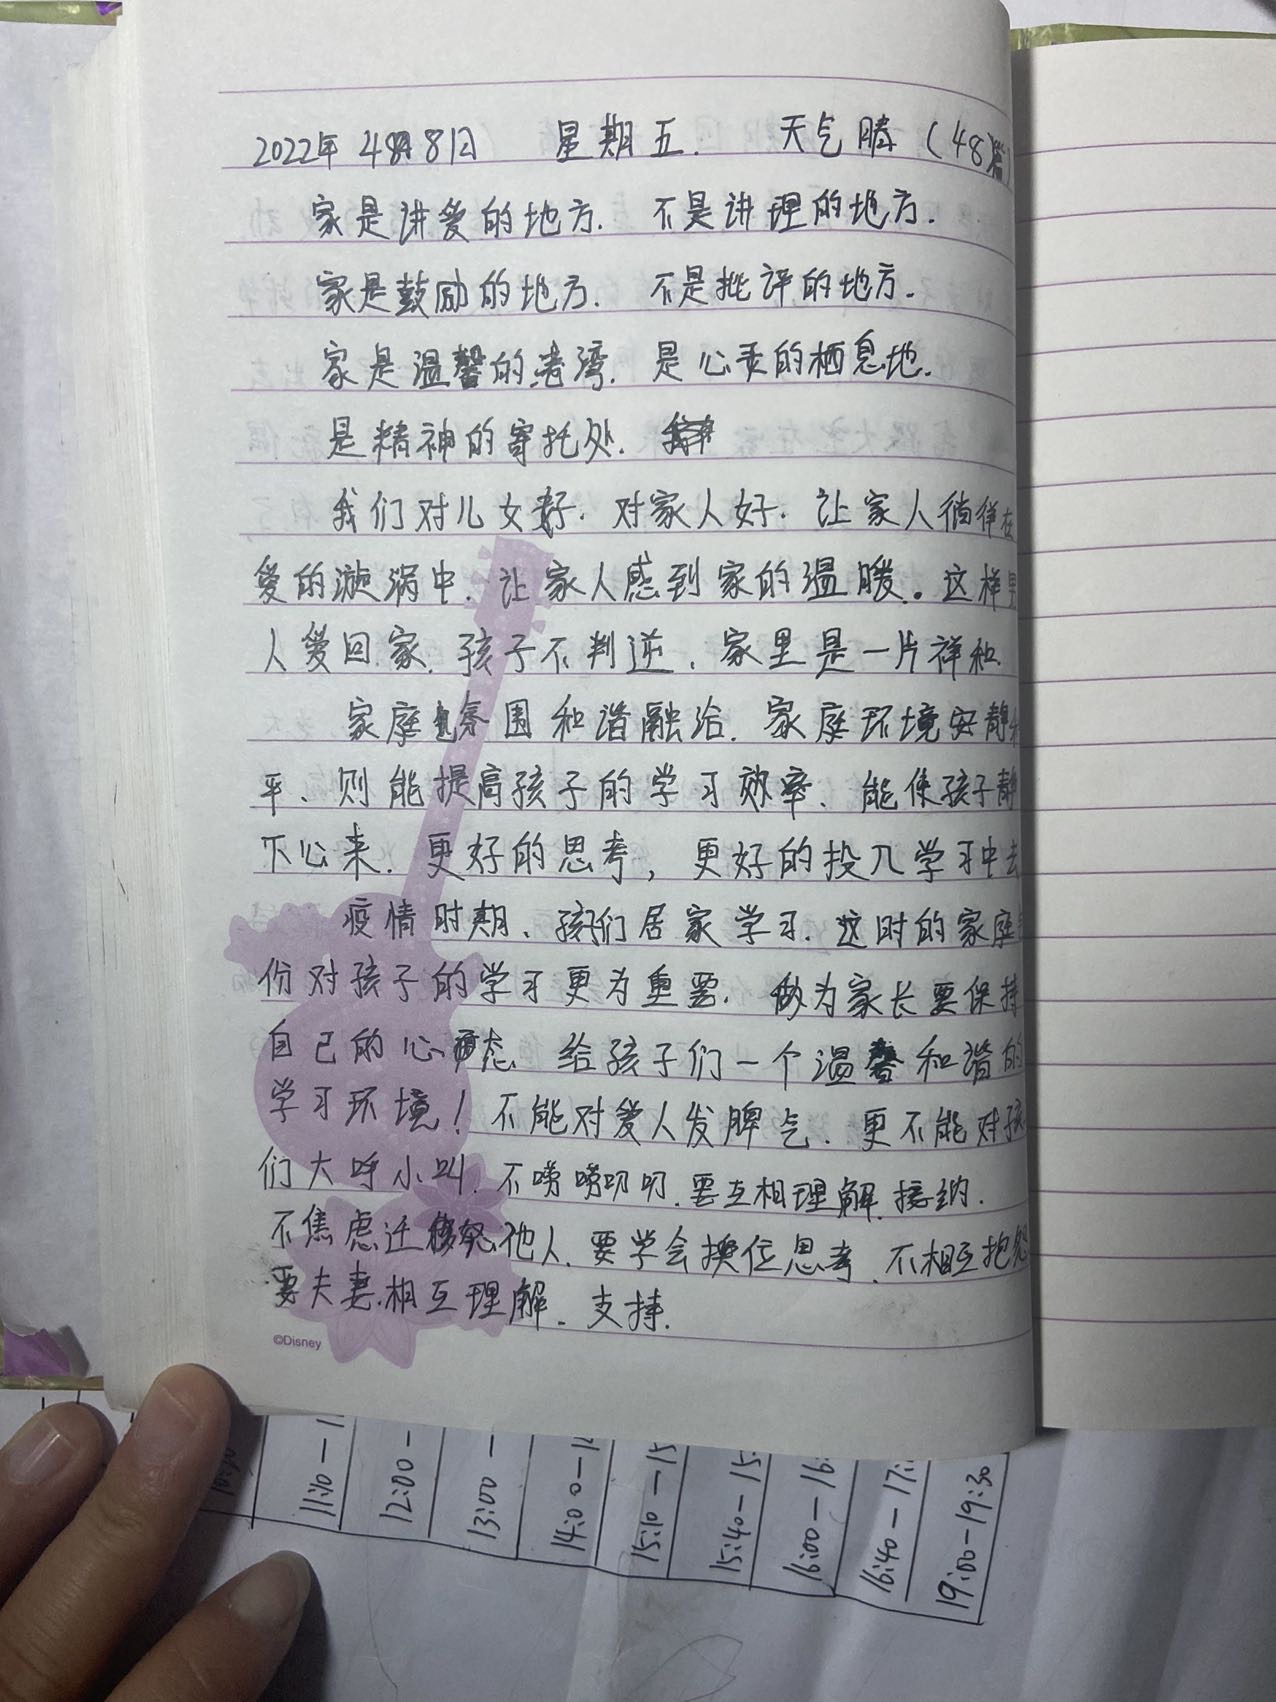 2022年4月8日 星期五. 天气晴(48篇)
家是讲爱的地方. 不是讲理的地方.
家是鼓励的地方. 不是批评的地方.
家是温馨的港湾. 是心灵的栖息地.
是精神的寄托处.
我们对儿女好. 对家人好. 让家人徜徉在
爱的漩涡中. 让家人感到家的温暖。这样男
人爱回家. 孩子不判逆. 家里是一片祥和.
家庭氛围和谐融洽. 家庭环境安静和
平、则能提高孩子的学习效率、能使孩子静
下心来. 更好的思考, 更好的投入学习中去
疫情时期、孩们居家学习. 这时的家庭
份对孩子的学习更为重要. 做为家长要保持
自己的心态 给孩子们一个温馨和谐的
学习环境! 不能对爱人发脾气. 更不能对孩
们大呼小叫. 不唠唠叨叨. 要互相理解. 接纳.
不焦虑迁怒他人. 要学会换位思考. 不相互抱怨
要夫妻.相互理解. 支持.
©Disney
11:10-1
12:00-
13:00-
14:00-1
15:10-15
15:40-15:
16:00-16:
16:40-17:
19:00-19:30